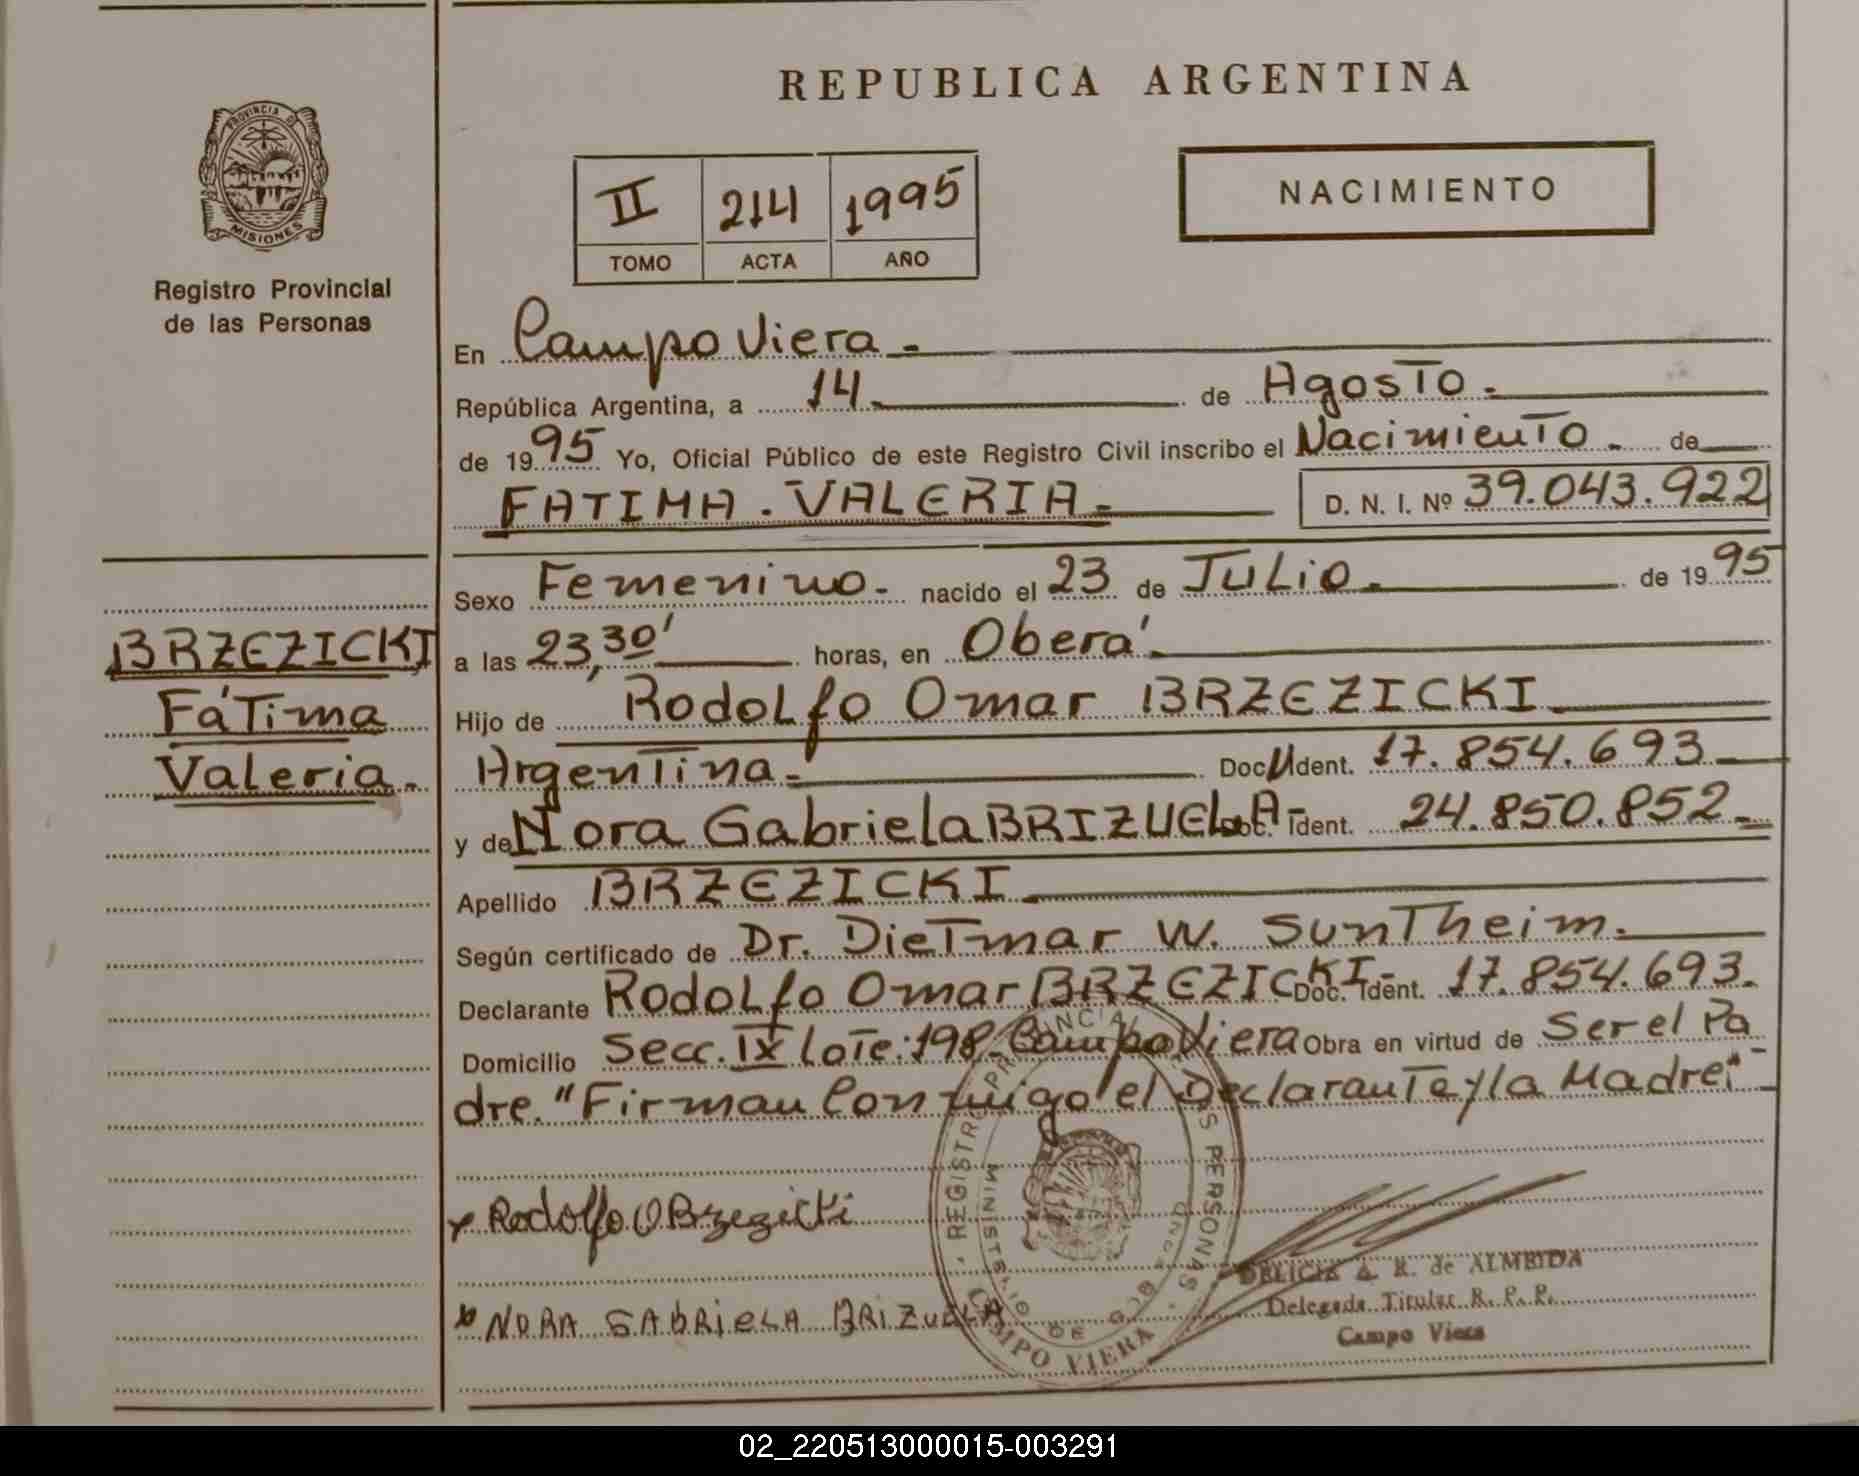 REPUBLICA ARGENTINA
PROVINCIA DE
MISIONES
Registro Provincial
de las Personas
NACIMIENTO
II 214 1995
TOMO ACTA AÑO
En Campo Viera.-
República Argentina, a 14 de Agosto.-
de 1995 Yo, Oficial Público de este Registro Civil inscribo el Nacimiento.- de
FATIMA. VALERIA.- D. N. I. Nº 39.043.922
Sexo Femenino.- nacido el 23 de Julio.- de 1995
a las 23,30' horas, en Oberá.-
Hijo de Rodolfo Omar BRZEZICKI.-
Argentina.- Doc. Ident. 17.854.693
y de Nora Gabriela BRIZUELA- Doc. Ident. 24.850.852.-
Apellido BRZEZICKI.-
Según certificado de Dr. Dietmar W. Suntheim.-
Declarante Rodolfo Omar BRZEZICKI- Doc. Ident. 17.854.693.
Domicilio Secc. IX Lote: 198- Campo Viera Obra en virtud de Ser el Pa
dre. "Firman Conmigo el Declarante y la Madre".-
BRZEZICKI
Fátima
Valeria.-
x Rodolfo O Brzezicki
x NORA GABRIELA BRIZUELA
REGISTRO PROVINCIAL DE LAS PERSONAS
MINISTERIO DE GOB
CAMPO VIERA
DELICIA A. R. de ALMEIDA
Delegada Titular R. P. P.
Campo Viera
02_220513000015-003291